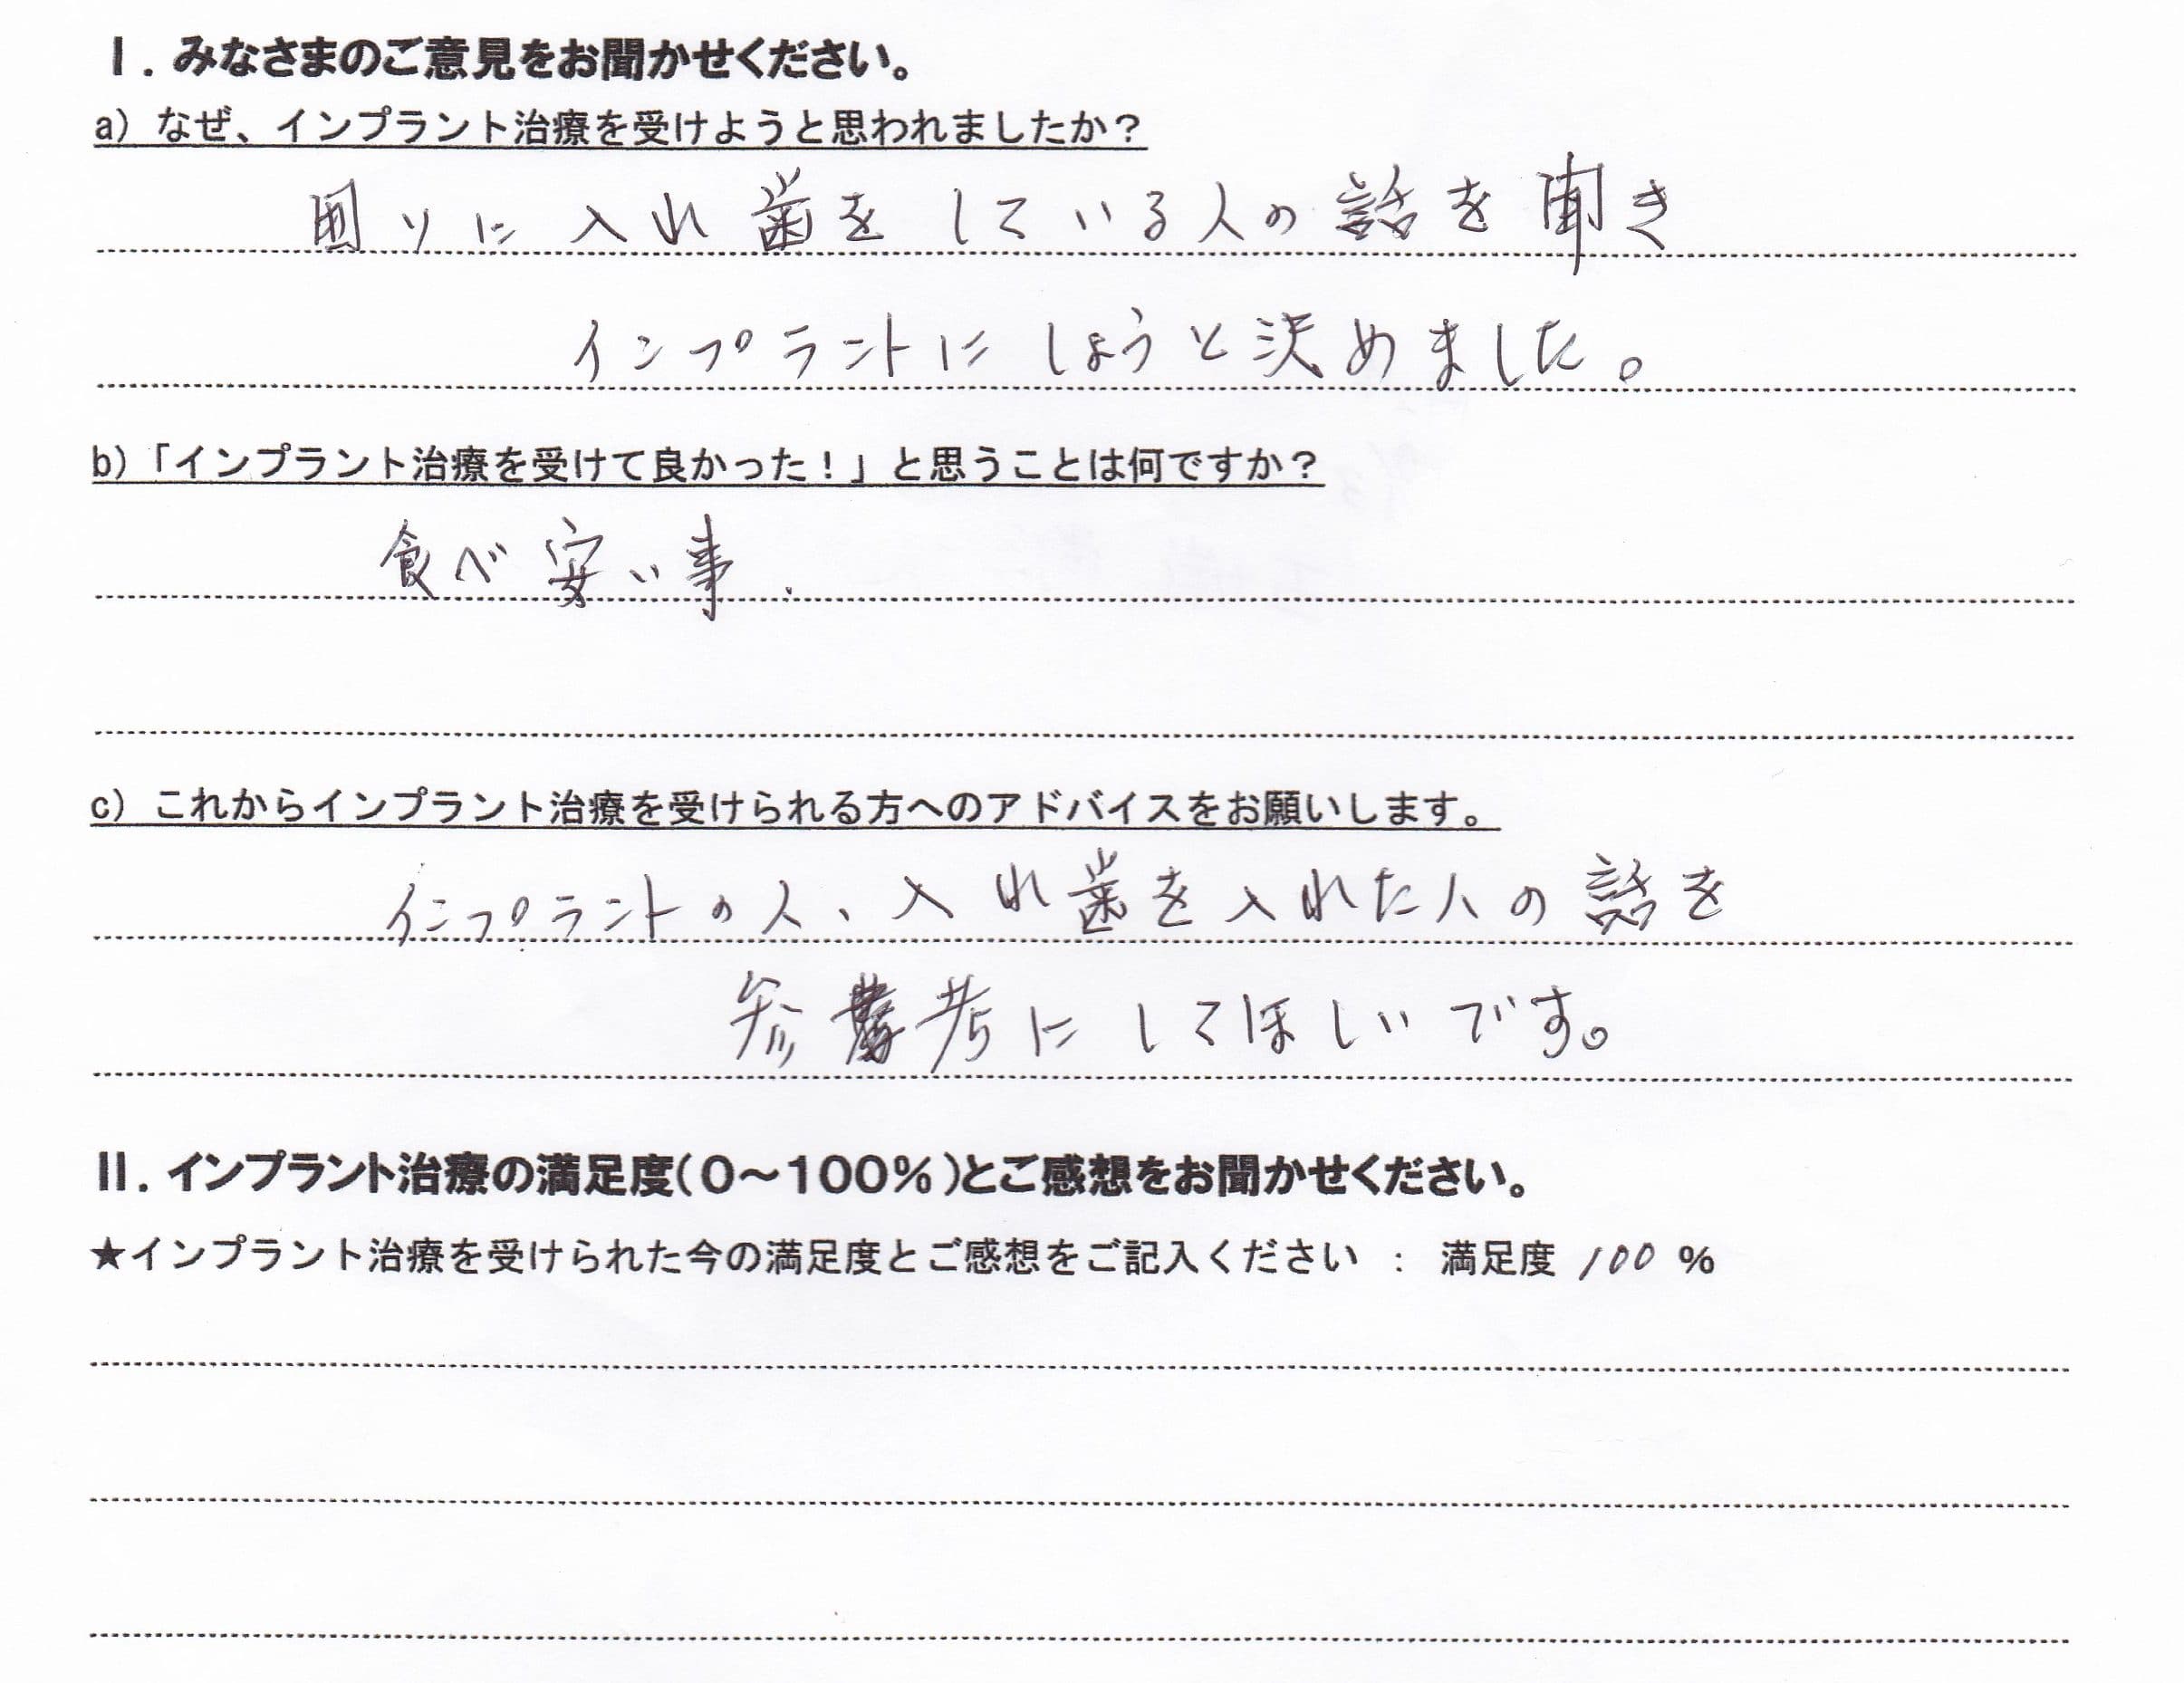 Ⅰ. みなさまのご意見をお聞かせください。
a) なぜ、インプラント治療を受けようと思われましたか？
囲りに入れ歯をしている人の話を聞き
インプラントにしようと決めました。
b)「インプラント治療を受けて良かった！」と思うことは何ですか？
食べ安い事.
c) これからインプラント治療を受けられる方へのアドバイスをお願いします。
インプラントの人、入れ歯を入れた人の話を
参考にしてほしいです。
Ⅱ. インプラント治療の満足度(0～100%)とご感想をお聞かせください。
★インプラント治療を受けられた今の満足度とご感想をご記入ください : 満足度 100 %